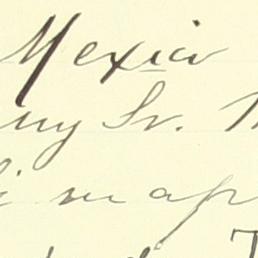 Mexico
uy Sr. M
i m ap